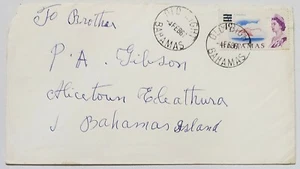 To Brother
P. A. Gibson
Alicetown Eleathura
Bahamas Island
OLD BIGHT
BAHAMAS
BAHAMAS
BAHAMAS